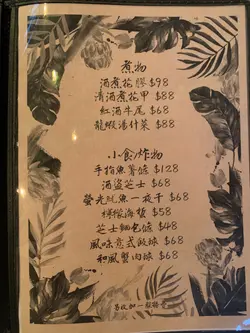 煮物
酒煮花膠 $98
清酒煮花甲 $88
紅酒牛尾 $68
龍蝦湯什菜 $88
小食/炸物
手指魚薯條 $128
酒盜芝士 $68
螢光魷魚一夜干 $68
檸檬海蜇 $58
芝士麵包條 $48
風味意式飯球 $68
和風蟹肉球 $68
另收加一服務費